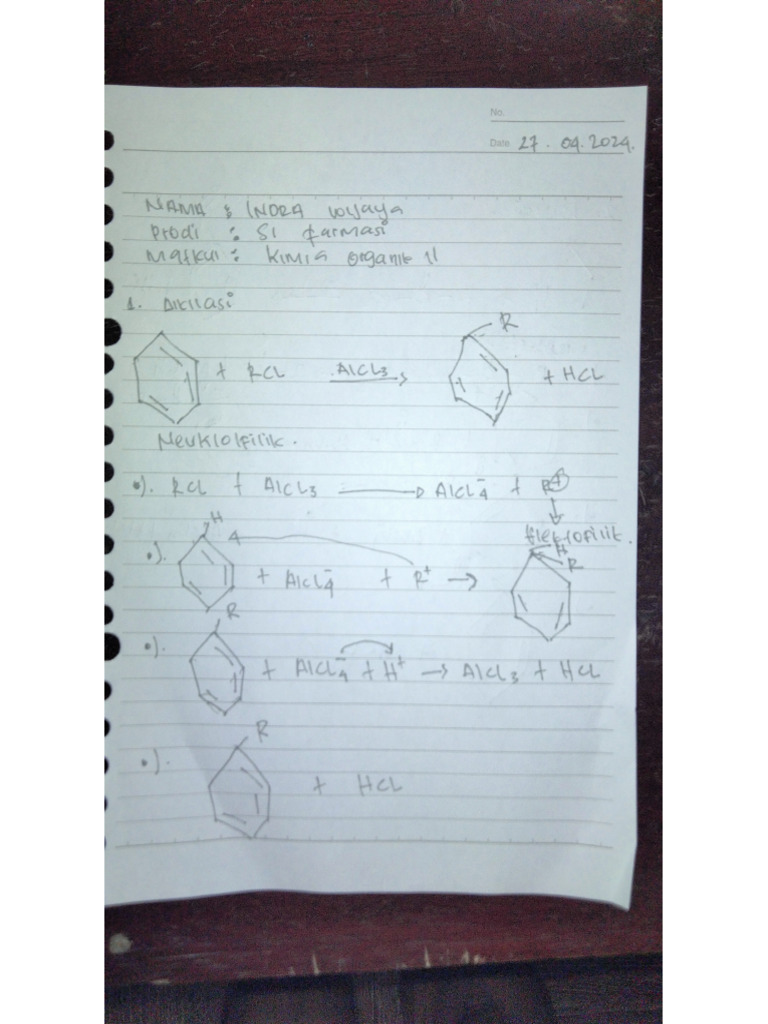 No.
Date 27. 04. 2024.
NAMA : INDRA Wijaya
Prodi : S1 farmasi
Matkul : Kimia Organik II
1. Alkilasi
+ RCL AlCL3 → R + HCL
Neuklolfilik.
•). RCL + AlCL3 → AlCL4⁻ + R⊕
↓
Elektrofilik.
•). H + AlCL4⁻ + R⁺ → H R
•). R + AlCL4⁻ + H⁺ → AlCL3 + HCL
•). R + HCL